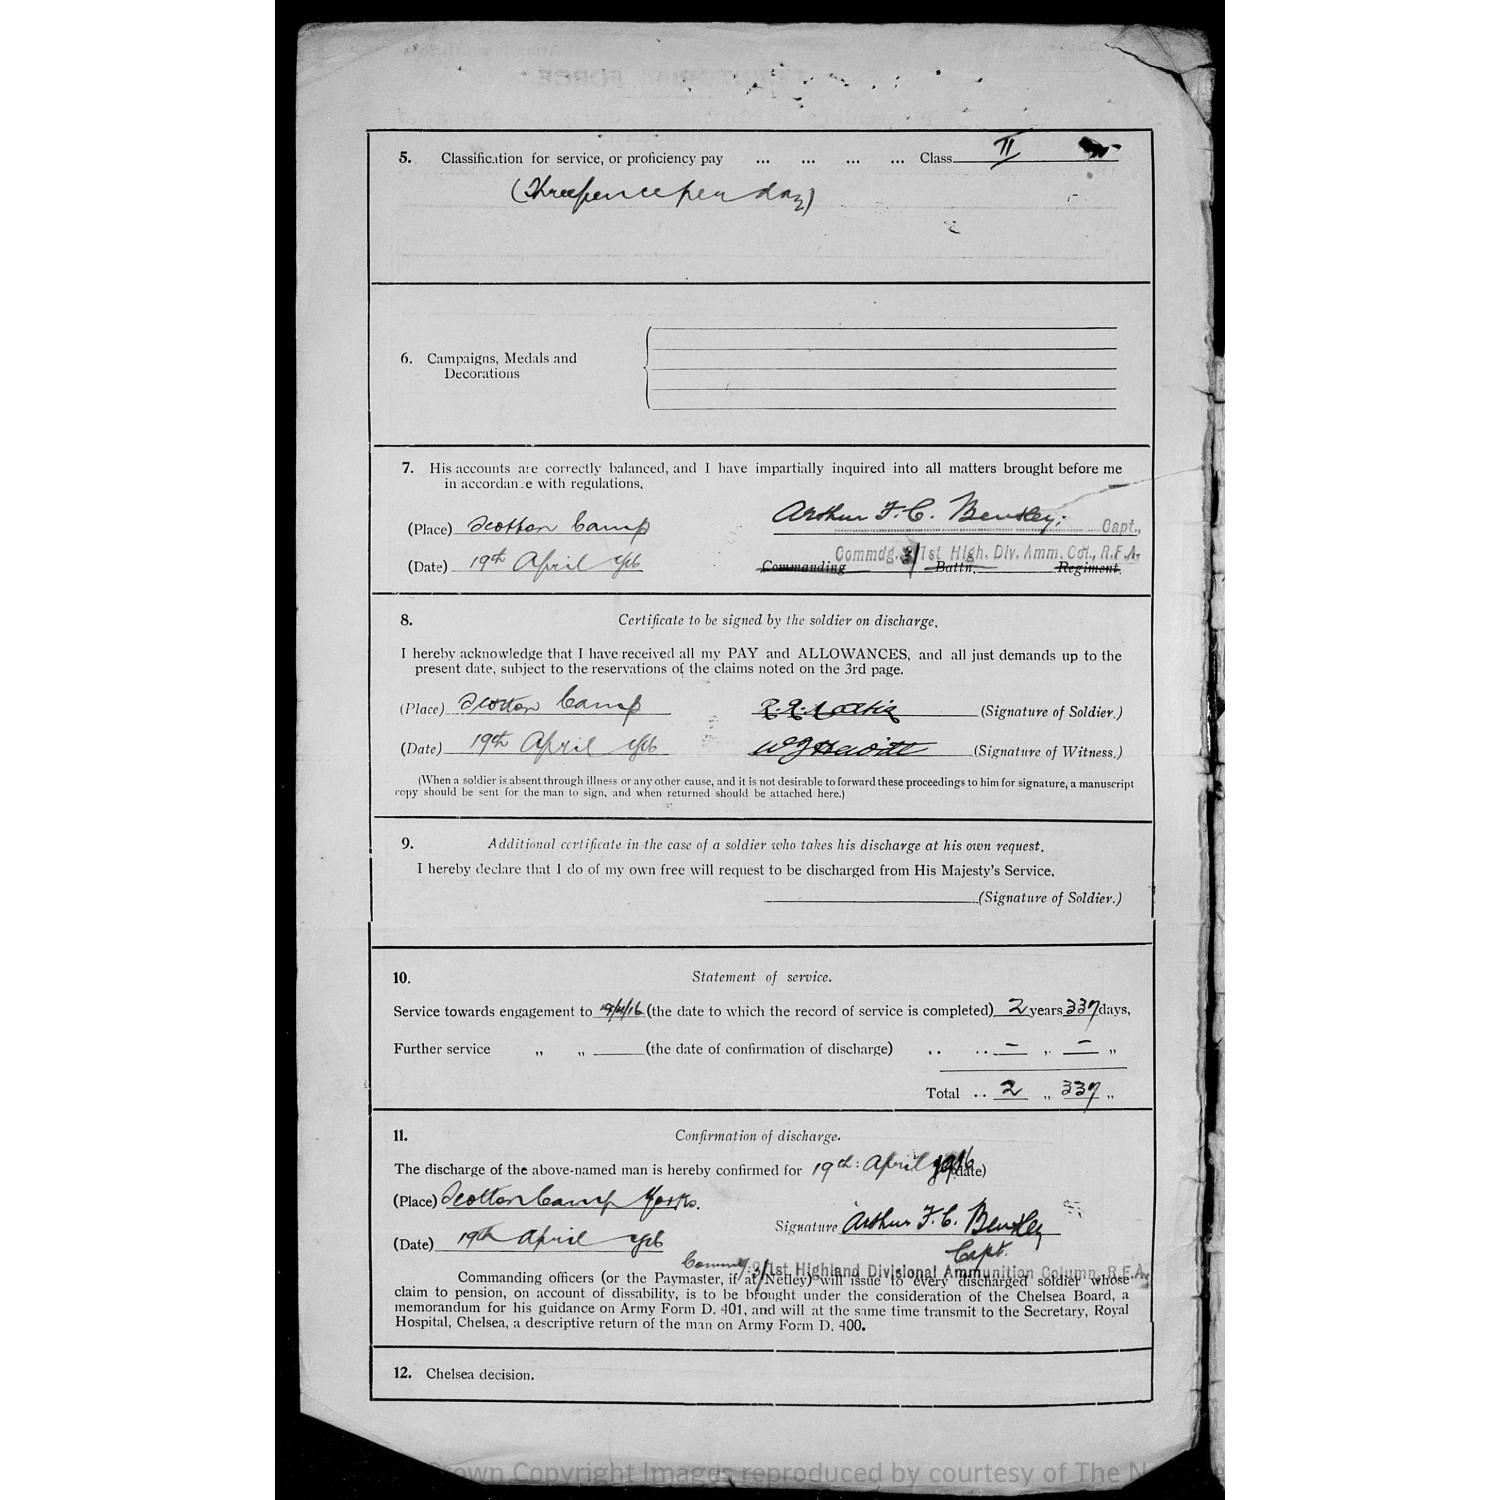 5. Classification for service, or proficiency pay ... ... ... ... Class II
(Threepence per day)
6. Campaigns, Medals and
Decorations
7. His accounts are correctly balanced, and I have impartially inquired into all matters brought before me
in accordance with regulations.
(Place) Scotton Camp Arthur F. C. Bentley. Capt.,
Commdg. 3/1st High. Div. Amm. Col., R.F.A.
(Date) 19th April 1916 Commanding Battn. Regiment.
8. Certificate to be signed by the soldier on discharge.
I hereby acknowledge that I have received all my PAY and ALLOWANCES, and all just demands up to the
present date, subject to the reservations of the claims noted on the 3rd page.
(Place) Scotton Camp (Signature of Soldier.)
(Date) 19th April 1916 W J Hewitt (Signature of Witness.)
(When a soldier is absent through illness or any other cause, and it is not desirable to forward these proceedings to him for signature, a manuscript
copy should be sent for the man to sign, and when returned should be attached here.)
9. Additional certificate in the case of a soldier who takes his discharge at his own request.
I hereby declare that I do of my own free will request to be discharged from His Majesty's Service.
(Signature of Soldier.)
10. Statement of service.
Service towards engagement to 19/4/16 (the date to which the record of service is completed) 2 years 337 days,
Further service " " (the date of confirmation of discharge) .. .. – " – "
Total .. 2 " 337 "
11. Confirmation of discharge.
The discharge of the above-named man is hereby confirmed for 19th: April 1916 (date)
(Place) Scotton Camp Yorks.
Signature Arthur F. C. Bentley
(Date) 19th April 1916 Capt.
Commdg. 3/1st Highland Divisional Ammunition Column, R.F.A.
Commanding officers (or the Paymaster, if at Netley) will issue to every discharged soldier whose
claim to pension, on account of dissability, is to be brought under the consideration of the Chelsea Board, a
memorandum for his guidance on Army Form D. 401, and will at the same time transmit to the Secretary, Royal
Hospital, Chelsea, a descriptive return of the man on Army Form D. 400.
12. Chelsea decision.
Crown Copyright Images reproduced by courtesy of The N